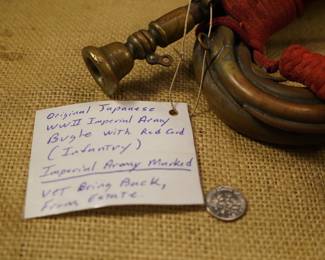 Original Japanese
WWII Imperial Army
Bugle with Red Cord
(Infantry)
Imperial Army Marked
Vet Bring Back,
From Estate